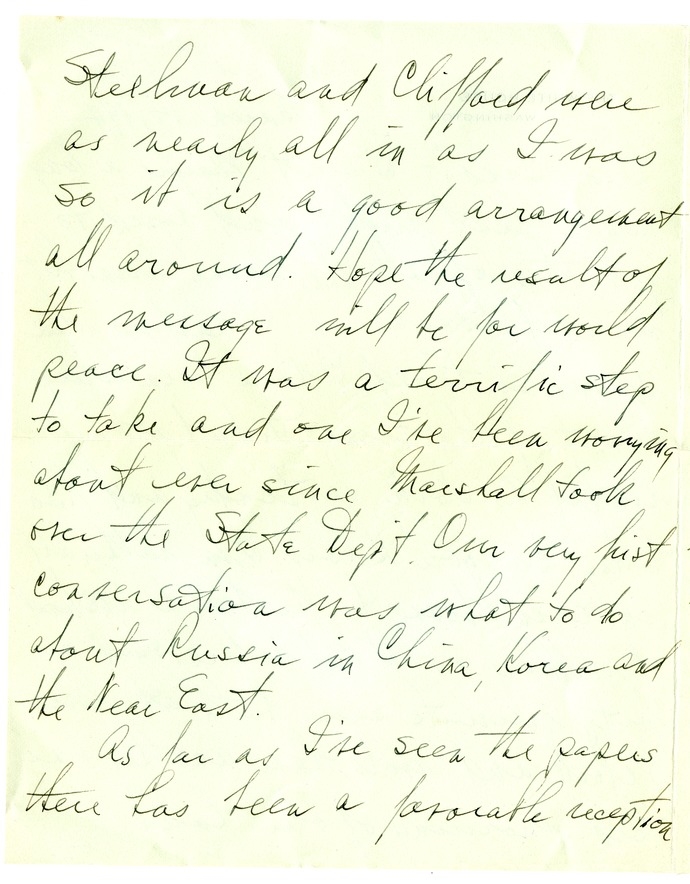 Steelman and Clifford were
as nearly all in as I was
so it is a good arrangement
all around. Hope the result of
the message will be for world
peace. It was a terrific step
to take and one I've been worrying
about ever since Marshall took
over the State Dep't. Our very first
conversation was what to do
about Russia in China, Korea and
the Near East.
As far as I've seen the papers
there has been a favorable reception